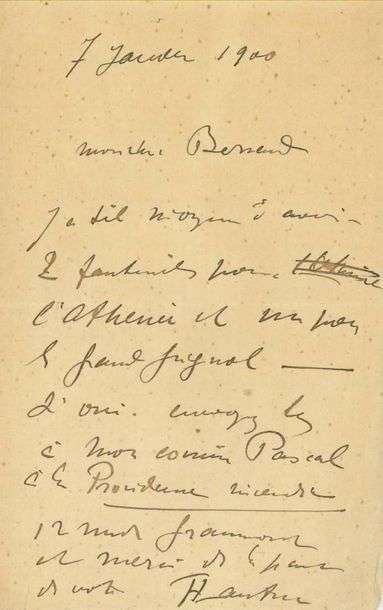 7 Janvier 1900
monsieur Bersand
y a til moyen d'avoir
2 fauteuils pour
l'athenée et un pour
le grand guignol —
envoyez les
à mon cousin Pascal
à la Providence incendie
12 rue de Grammont
et merci de la part
de votre